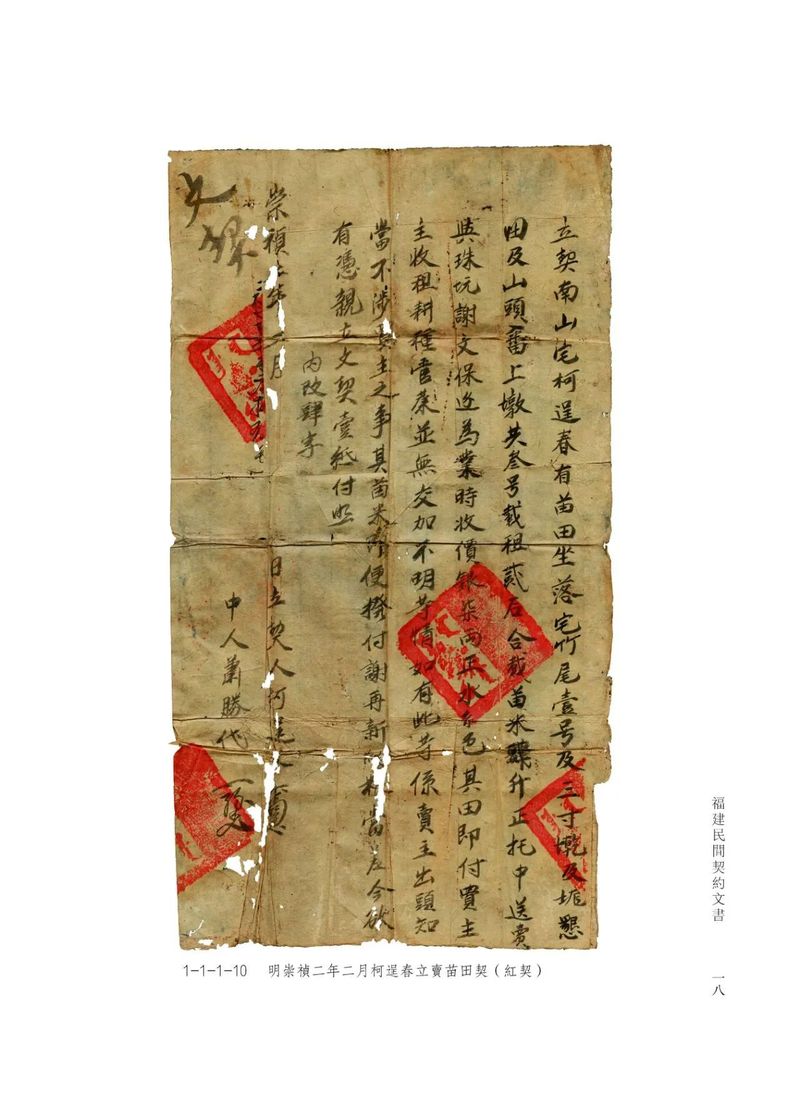 立契南山宅柯逞春有苗田坐落宅竹尾壹号及三寸墘及垊懇
田及山頭畬上墩共叁号載租貳石合載苗米肆升正托中送賣
與珠坑謝文保边為業時收價銀柒両正水色其田即付買主
主收租耕種管業並無交加不明等情如有此等係賣主出頭知
當不涉買主之事其苗米隨便撥付謝再新當差今欲
有憑親立文契壹紙付照
内改肆字
崇禎二年二月 日立契人柯逞春
中人蕭勝代
文契
1-1-1-10 明崇禎二年二月柯逞春立賣苗田契（紅契）
福建民間契約文書
一八